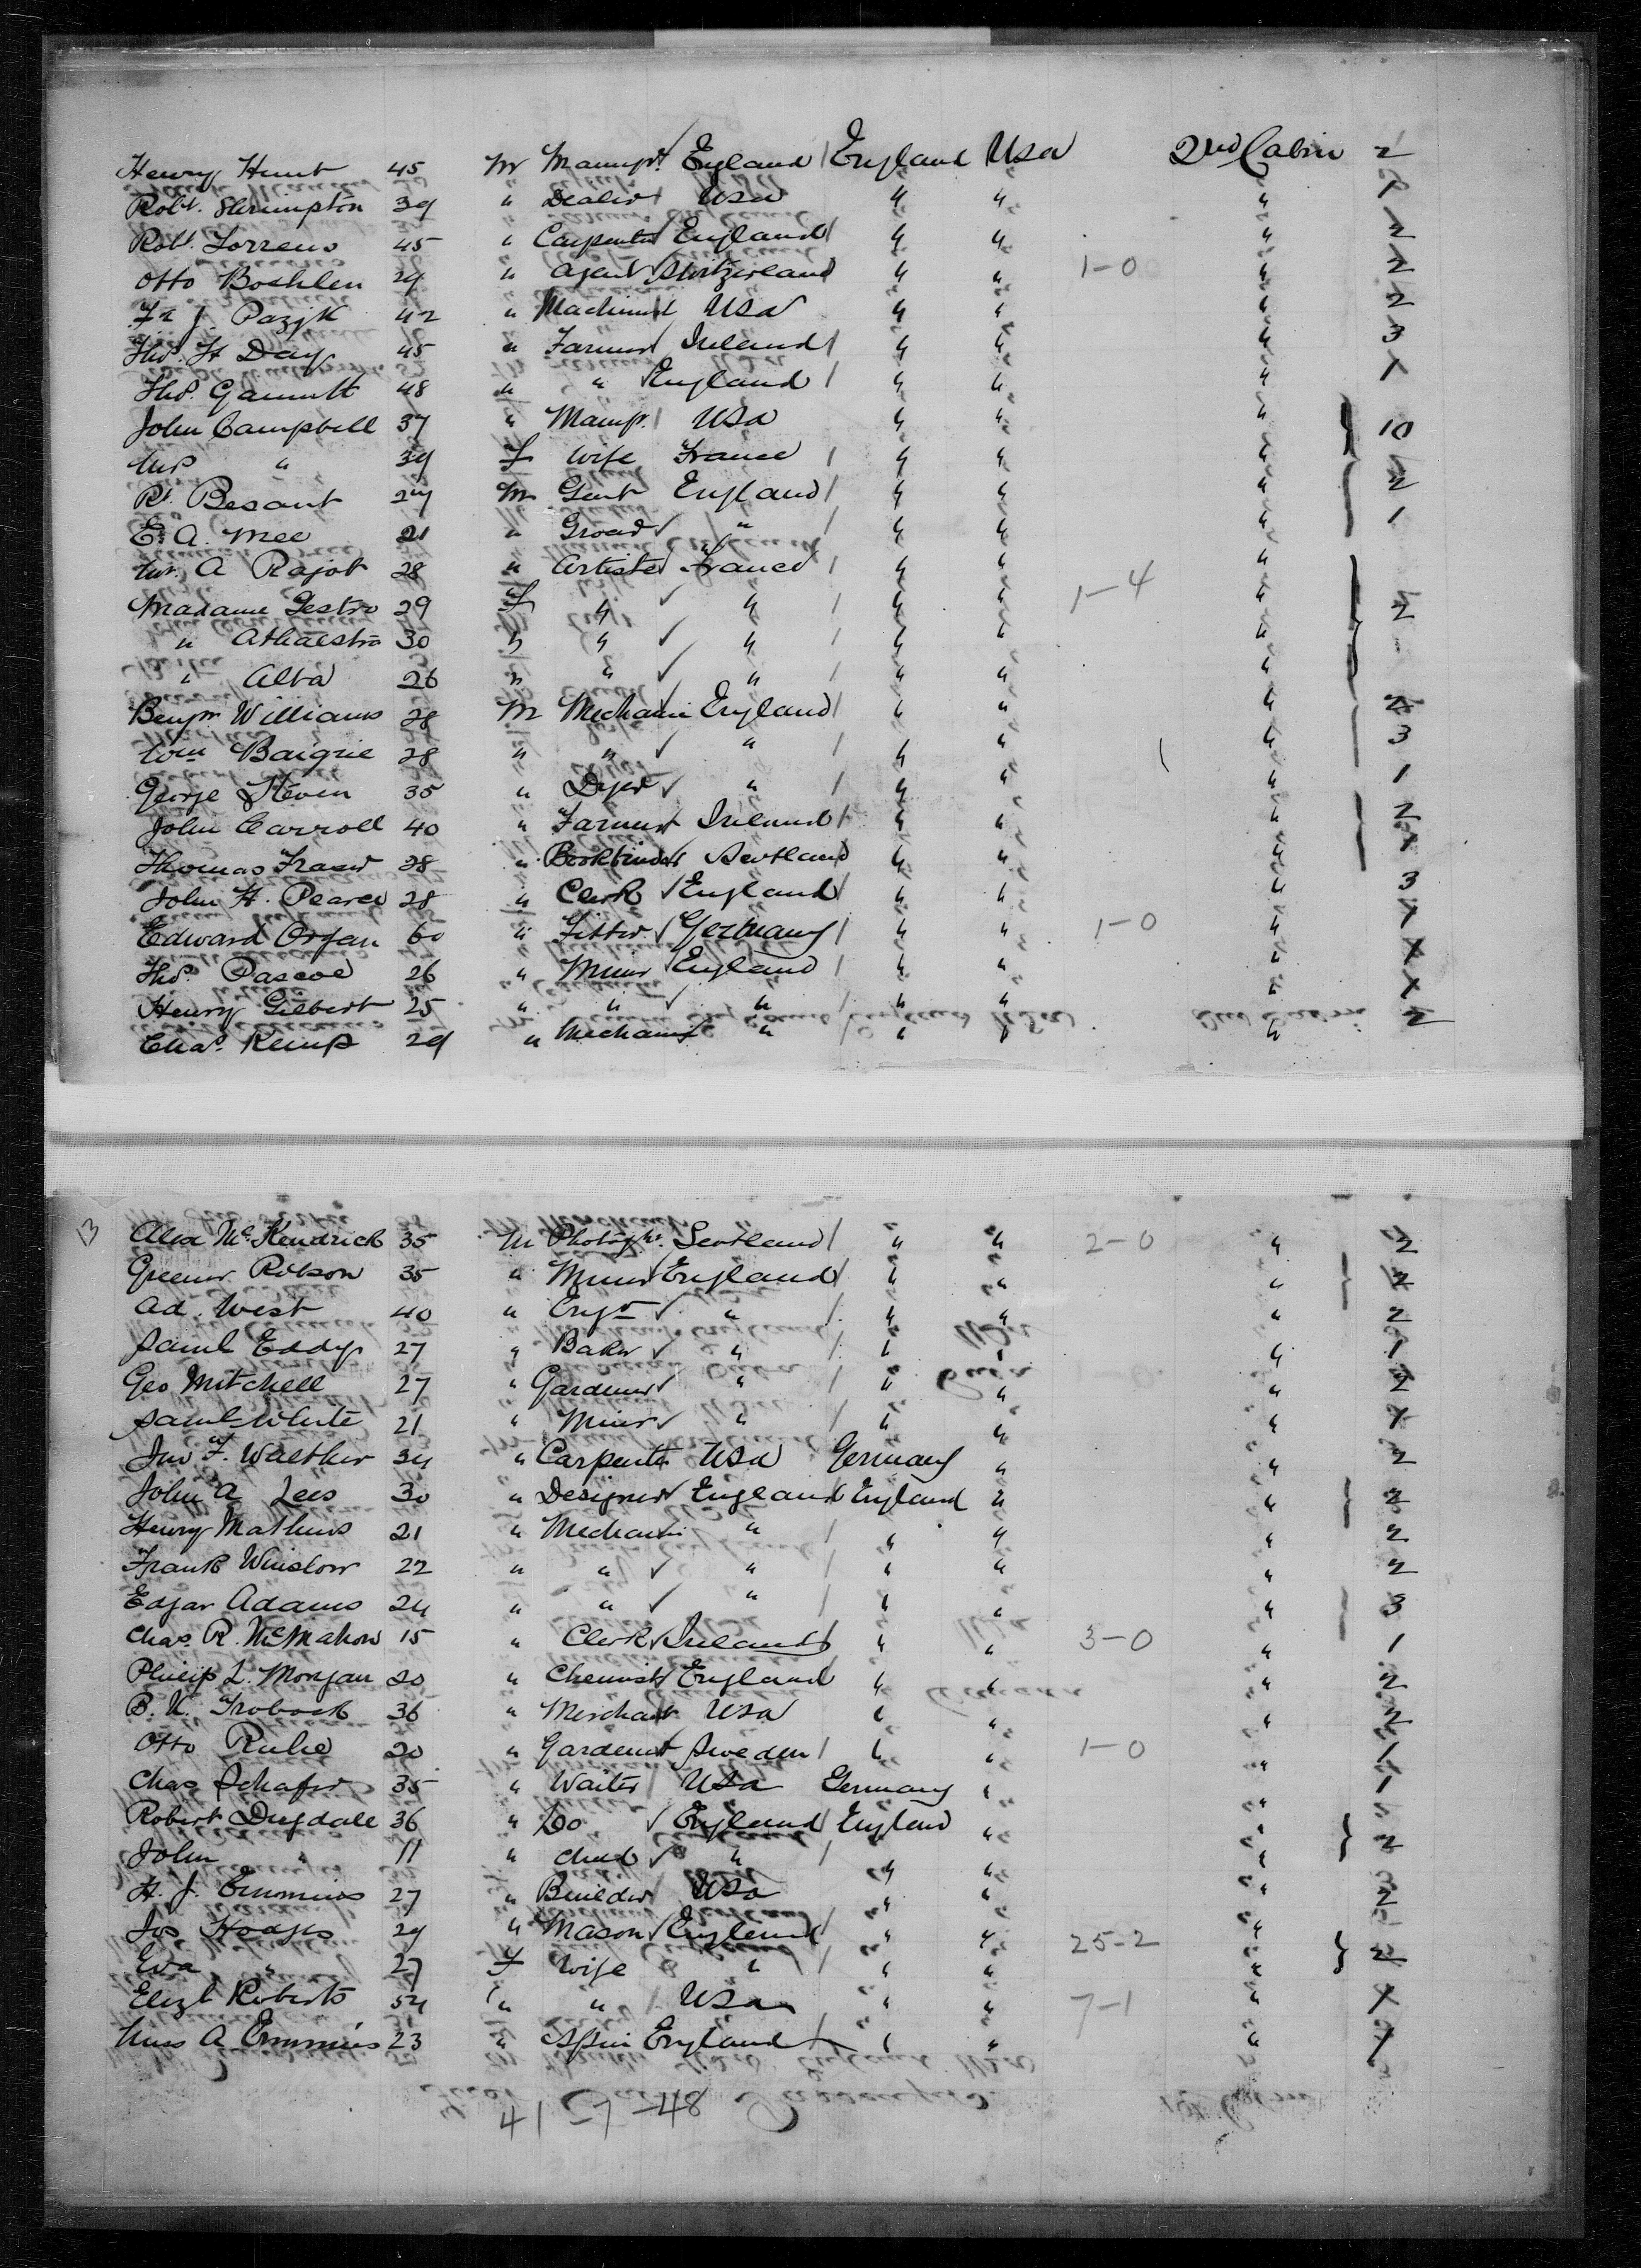 Henry Hunt 45 m England England Usa 2nd Cabin 2
Robt. Shrimpton 39 " Dealer Usa " " " 1
Robt. Torrens 45 " Carpenter England " " " 2
Otto 29 " agent Switzerland " " 1-0 " 2
J. 42 " Machinist Usa " " " 2
Thos. H Day 45 " Farmer Ireland " " " 3
Thos. 48 " " England " " " 1
John Campbell 37 " Usa " " " 10
Mrs " 39 f Wife France " " "
Rt. Besant 27 m Gent England " " " 2
E. A. Mee 21 " " " " " 1
A Rajot 28 " Artiste France " " "
Madame 29 f " " " " 1-4 " 2
" 30 " " " " " "
" Alba 26 " " " " " "
Benjn Williams 28 m Mechanic England " " " 2
Wm Baigrie 28 " " " " " " 3
George 35 " Dyer " " " " 1
John Carroll 40 " Farmer Ireland " " " 2
Thomas Fraser 28 " Bookbinder Scotland " " " 1
John H. Pearce 28 " Clerk England " " " 3
Edward Organ 60 " Fitter Germany " " 1-0 " 1
Thos. Pascoe 26 " Miner England " " " 1
Henry Gilbert 25 " " " " " " 1
Chas. Kemp 29 " Mechanic " " " " 2
13 Alex McKendrick 35 m Photoghr. Scotland " " 2-0 " 2
Robson 35 " Miner England " " " 2
Ad. West 40 " Engr " " " " 2
Saml Eddy 27 " Baker " " " " 1
Geo Mitchell 27 " Gardener " " " " 2
Saml White 21 " Miner " " " " 1
Jno F. Walther 34 " Carpenter Usa Germany " " 2
John A Lees 30 " Designer England England " " 2
Henry Mathews 21 " Mechanic " " " " 2
Frank Winslow 22 " " " " " " 2
Edgar Adams 24 " " " " " " 3
Chas. R. McMahon 15 " Clerk Ireland " " 3-0 " 1
Philip L. Morgan 20 " Chemist England " " " 2
B. 36 " Merchant Usa " " " 2
Otto 20 " Gardener Sweden " " 1-0 " 1
Chas Schafer 35 " Waiter Usa Germany " " 1
Robert Dugdale 36 " Do England England " "
John " 11 " child " " " " 2
H. J. Emmins 27 " Builder Usa " " " 2
Jos Hodges 29 " Mason England " " 25-2 "
Eva " 27 f Wife " " " " 2
Elizt Roberts 54 " " Usa " " 7-1 " 1
Miss A Emmins 23 " Spin England " " " 1
41 48